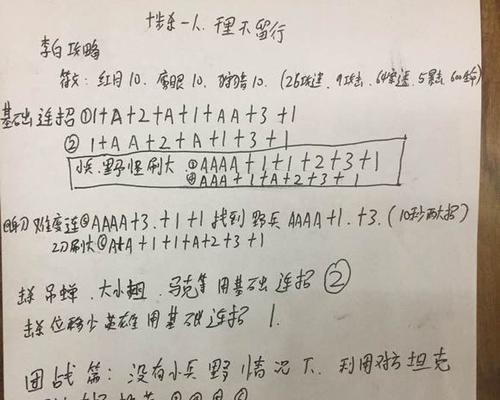 十步杀一人、千里不留行
李白攻略
符文：红月10、鹰眼10、狩猎10、(26攻速、9攻击、64穿透、5暴击、600生命)
基础连招①1+A+2+A+1+AA+3+1
②1+AA+2+A+1+3+1
小兵、野怪刷大：①AAAA+1+1+2+3+1
②AAA+1+A+2+3+1
难度连AAAA+3.+1+1找到野兵AAAA+1.+3.(10秒两大招)
刷大AtA+1+1+A+2+3+1
击杀吊蝉、大小、马克等用基础连招②
击杀位移少英雄用基础连招1.
团战篇：没有小兵野情况下、利用对方坦克